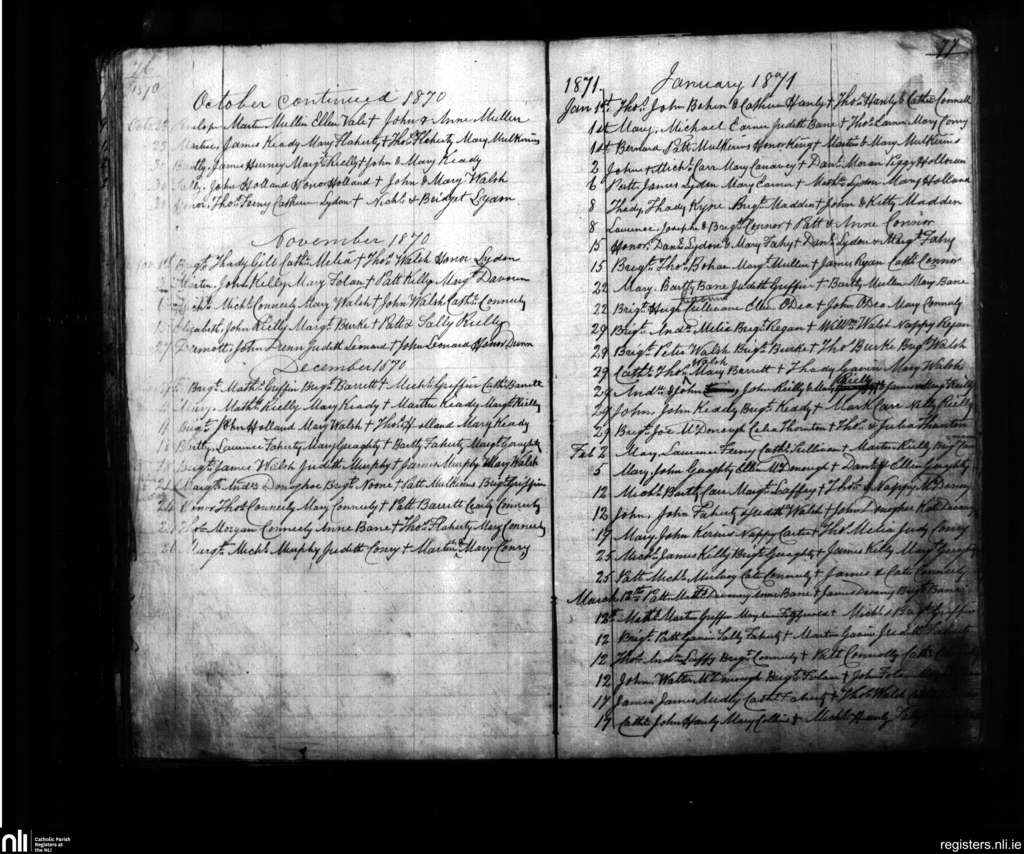 76
1870
October continued 1870
Martin Mullin Ellen Vale + John & Anne Mullin
25 James Ready Mary Flaherty + Thos. Flaherty Mary Mulkerins
James Herney Margt. Kielly + John & Mary Ready
30 John Holland Honor Holland + John & Mary Walsh
30 Honor, Thos. Ferny Cathern Lydon + Nichs. & Bridget Lydon
November 1870
Brigt. Thady Cele Cathe. Melia + Thos. Walsh Honor Lydon
Martin John Kelly Mary Folan + Patt Kelly Margt. Davoren
Michl. Michl. Connerly Mary Walsh + John Walsh Cathe. Connerly
Elizabeth, John Kielly Margt. Burke + Patt & Sally Kielly
27 Dermott, John Drenn Judith Leonard + John Leonard Honor Drenn
December 1870
Brigt. Mathw. Griffin Brigt. Barrett + Michl. Griffin Cathe. Barrett
Mary, Mathw. Kielly Mary Ready + Martin Ready Margt. Kielly
11 Brigt. John Holland Mary Walsh + Thos. Holland Mary Ready
18 Bartly, Laurence Faherty Mary Geraghty + Bartly Faherty Margt. Geraghty
18 Brigt. James Walsh Judith Murphy + James Murphy Mary Walsh
21 Margt. Andw. Donoghoe Brigt. Noone + Patt Mulkerins Brigt. Griffin
24 Honor Thos. Connerly Mary Connerly + Patt Barrett Connerly
Thos. Morgan Connerly Anne Bane + Thos. Flaherty Mary Connerly
31 Margt. Michl. Murphy Judith Conry + Martin & Mary Conry
77
1871. January 1871
Jan 1st Thos. John Bohen & Cathern Hanly + Thos. Hanly & Cathe. Connell
1st Mary, Michael Earner Judith Bane + Thos. Earner Mary Conry
1st Bernard Patt Mulkerins Honor King + Martin & Mary Mulkerins
2 John + Michl. Carr Mary Canavey + Danl. Moran Peggy Holloran
6 Patt. James Lydon Mary Earner + Mathw. Lydon Mary Holland
8 Thady, Thady Kyne Brigt. Madden + John & Kitty Madden
8 Laurence, Joseph & Brigt. Connor + Patt & Anne Connor
15 Honor, Danl. Lydon & Mary Fahy + Danl. Lydon & Margt. Fahy
15 Brigt. Thos. Bohan Margt. Mullen + James Ryan Cathe. Connor
22 Mary, Bartly Bane Judith Griffin + Bartly Mullen Mary Bane
22 Brigt. Hugh Ellen O'Dea + John O'Dea Mary Connely
29 Brigt. Andw. Melia Brigt. Regan + Willm. Walsh Nappy Regan
29 Brigt. Peter Walsh Brigt. Burke + Thos. Burke Brigt. Walsh
Walsh
29 Cathe. Thos. Mary Barrett + Thady Gavin Mary Walsh
Kielly
29 Andw. & John John Kielly & James Mary Kielly
29 John, John Keddy Brigt. Keddy + Mark Carr Nelly Kielly
29 Brigt. Joe McDonough Celia Thornton + Thos. & Julia Thornton
Feb 2 Mary Laurence Ferny Cathe. Sullivan + Martin Kielly Brigt.
5 Mary, John Geaghty Ellen McDonough + Danl. & Ellen Geaghty
12 Michl. Bartly Carr Margt. Laffey + Thos. & Nappy McDonough
12 John, John Faherty Judith Walsh + John Donoghoe Kate
19 Mary, John Kerins Nappy Carter + Thos. Melia Judy Conry
25 Michl. James Kelly Brigt. Geaghty + James Kelly Margt. Geaghty
25 Patt Michl. Mulroy Cate Connerly + James & Cate Connerly
March 12th Patt Mathw. Anne Bane + James Brigt. Bane
12th Michl. Martin Griffin Fitzgerald + Michl. & Brigt. Griffin
12 Brigt. Patt Gavin Sally Faherty + Martin Gavin Judith Faherty
12 Thos. Andw. Laffey Brigt. Connerly + Patt Connolly Cathe.
12 John Walter McDonough Brigt. Folan + John Folan
17 James James Cathe. Faherty + Thos. Walsh
19 Cathe. John Hanly Mary Collins + Michl. Hanly
nli
Catholic Parish
Registers at
the NLI
registers.nli.ie